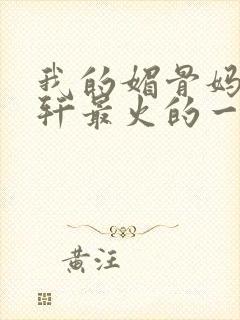 我的媚骨妈
轩最火的一
黄汪